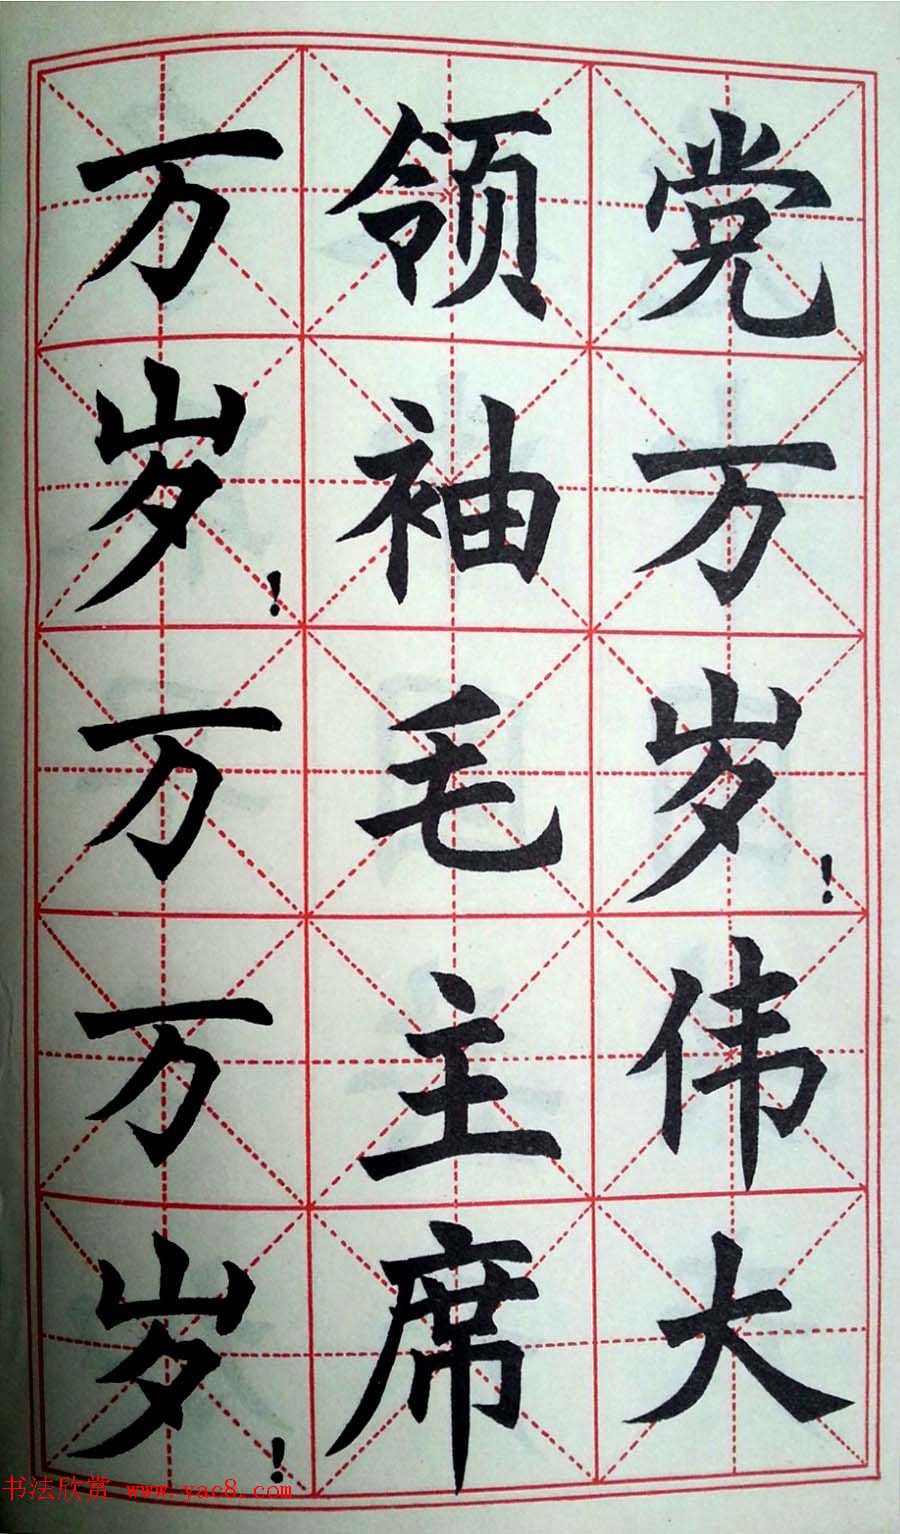 党万岁！伟大
领袖毛主席
万岁！万万岁！
书法欣赏 www.yac8.com